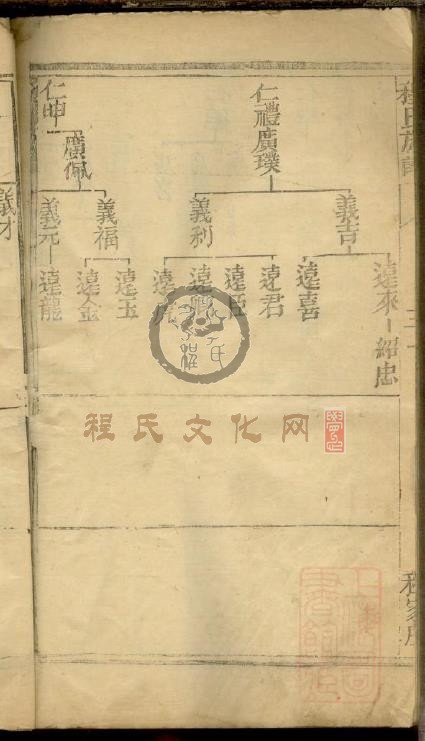 程氏族譜
遠來
紹忠
仁禮廣璞
義吉
遠喜
遠君
遠臣
義利
遠卿
遠虎
仁申
廣佩
義福
遠玉
遠金
義元
遠龍
義才
程氏文化网